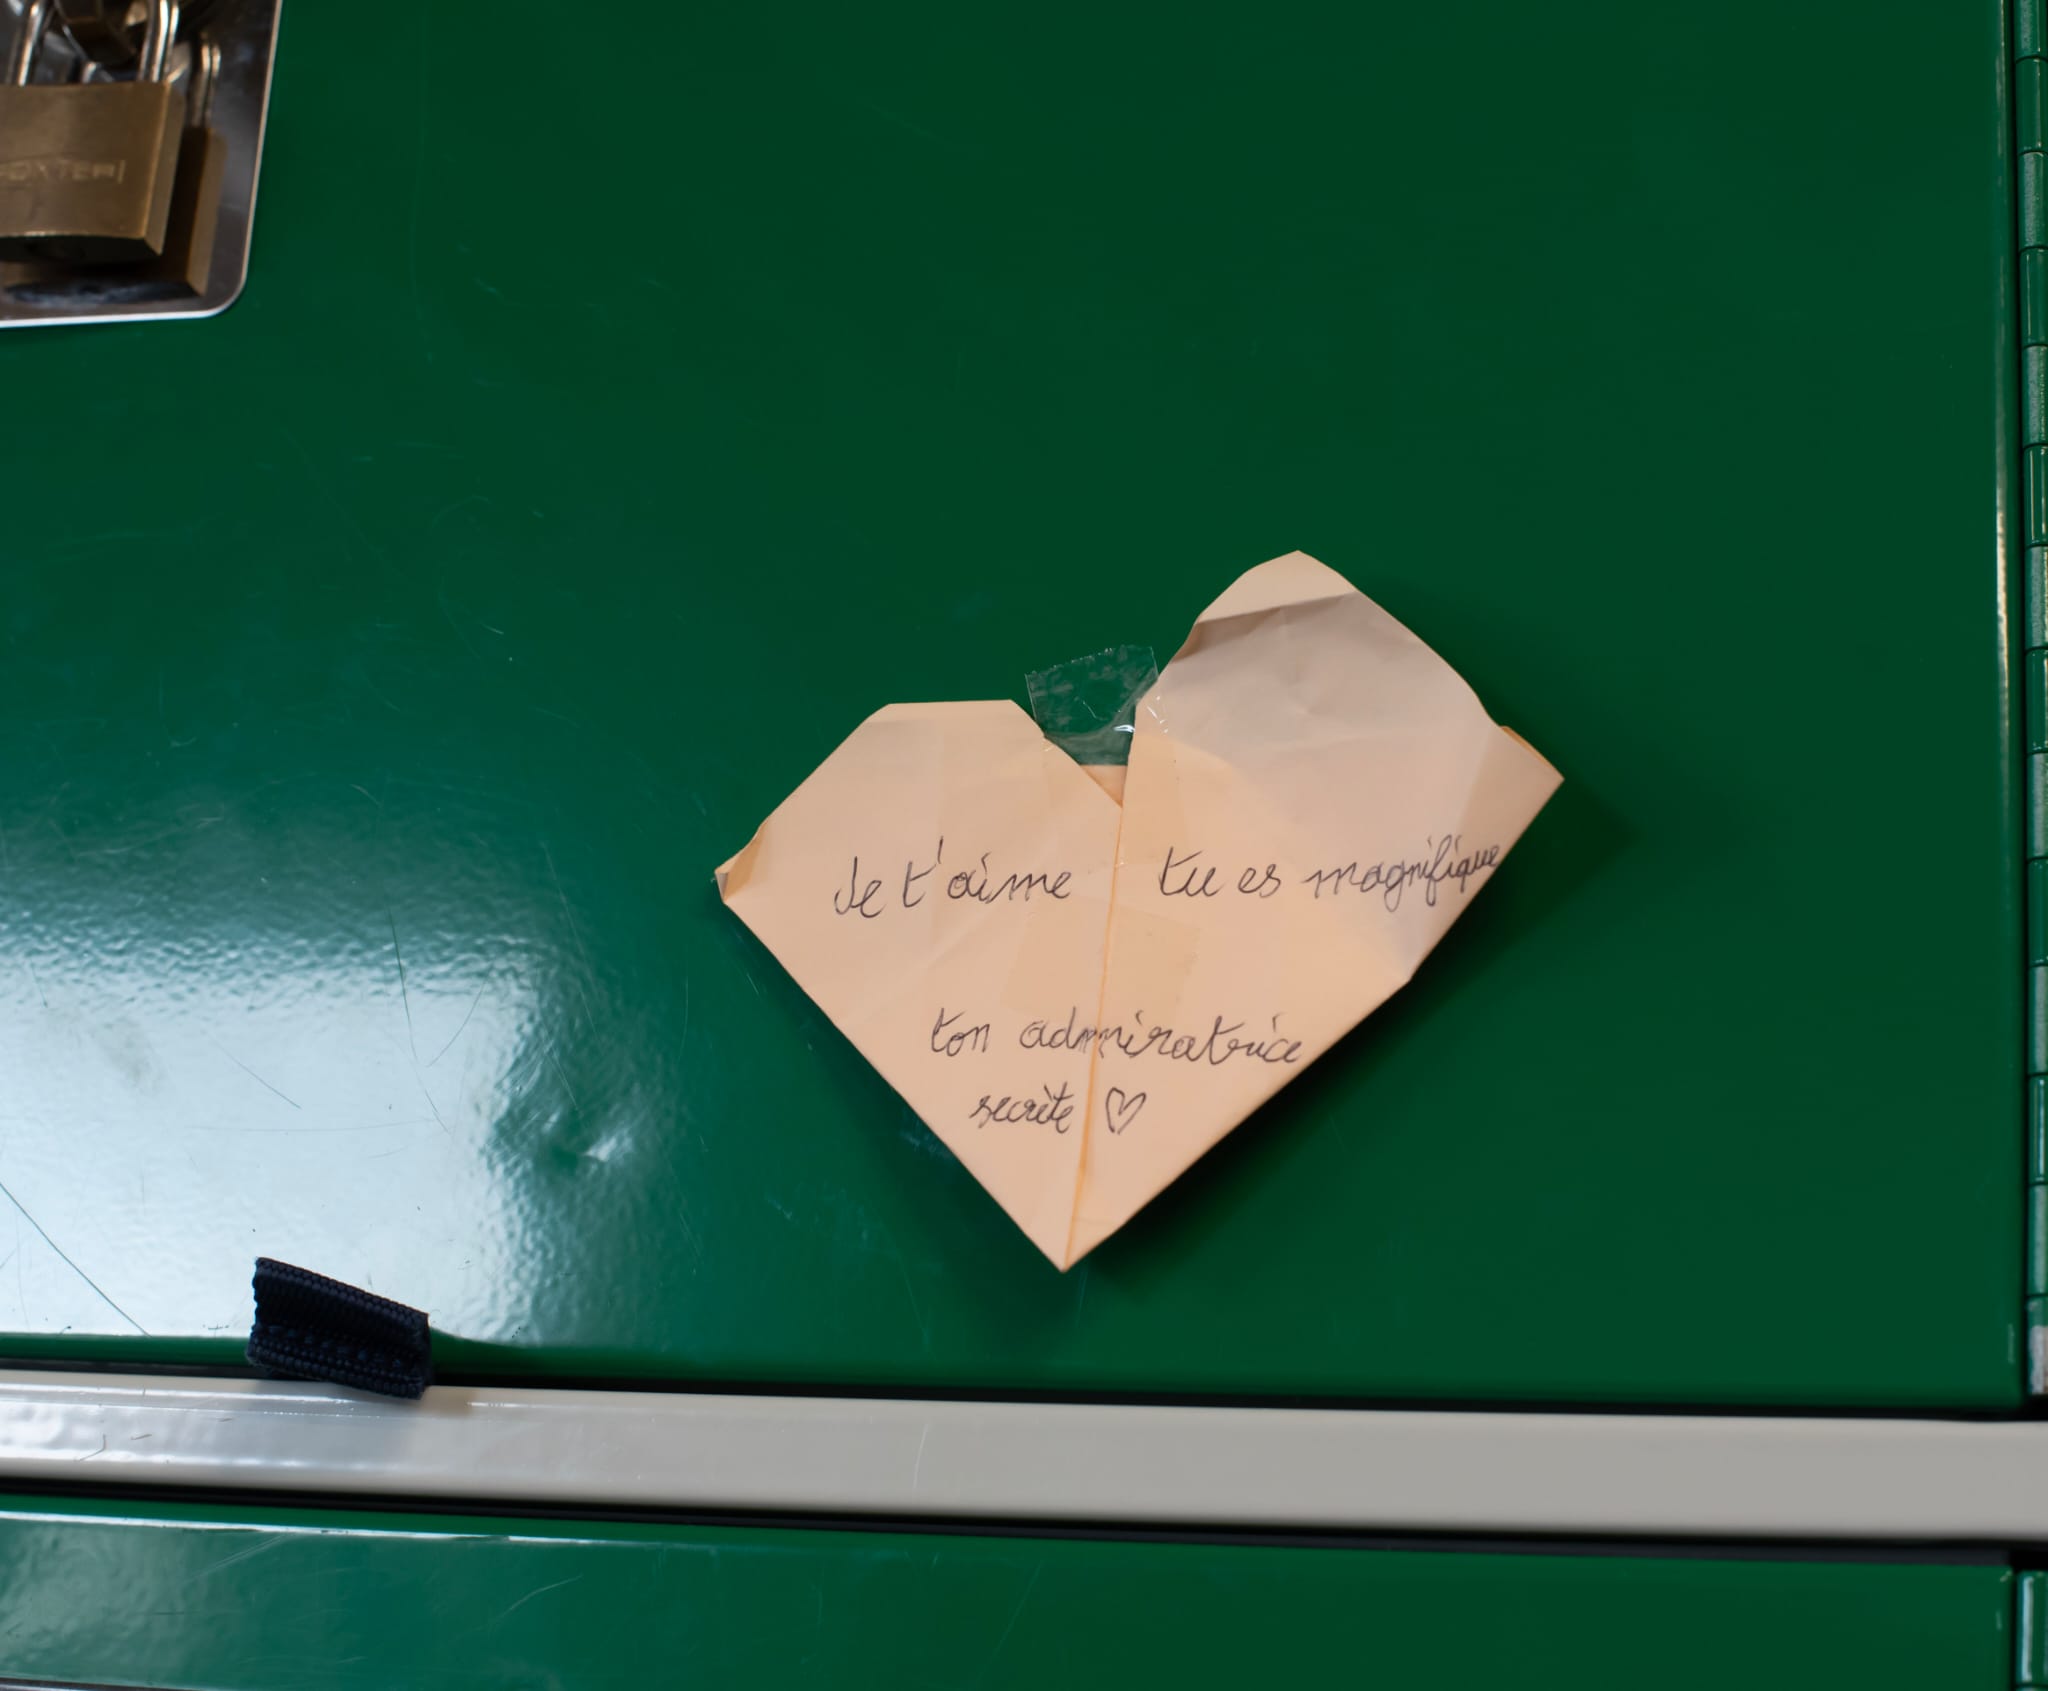 Je t'aime tu es magnifique
ton admiratrice
secrète ♡